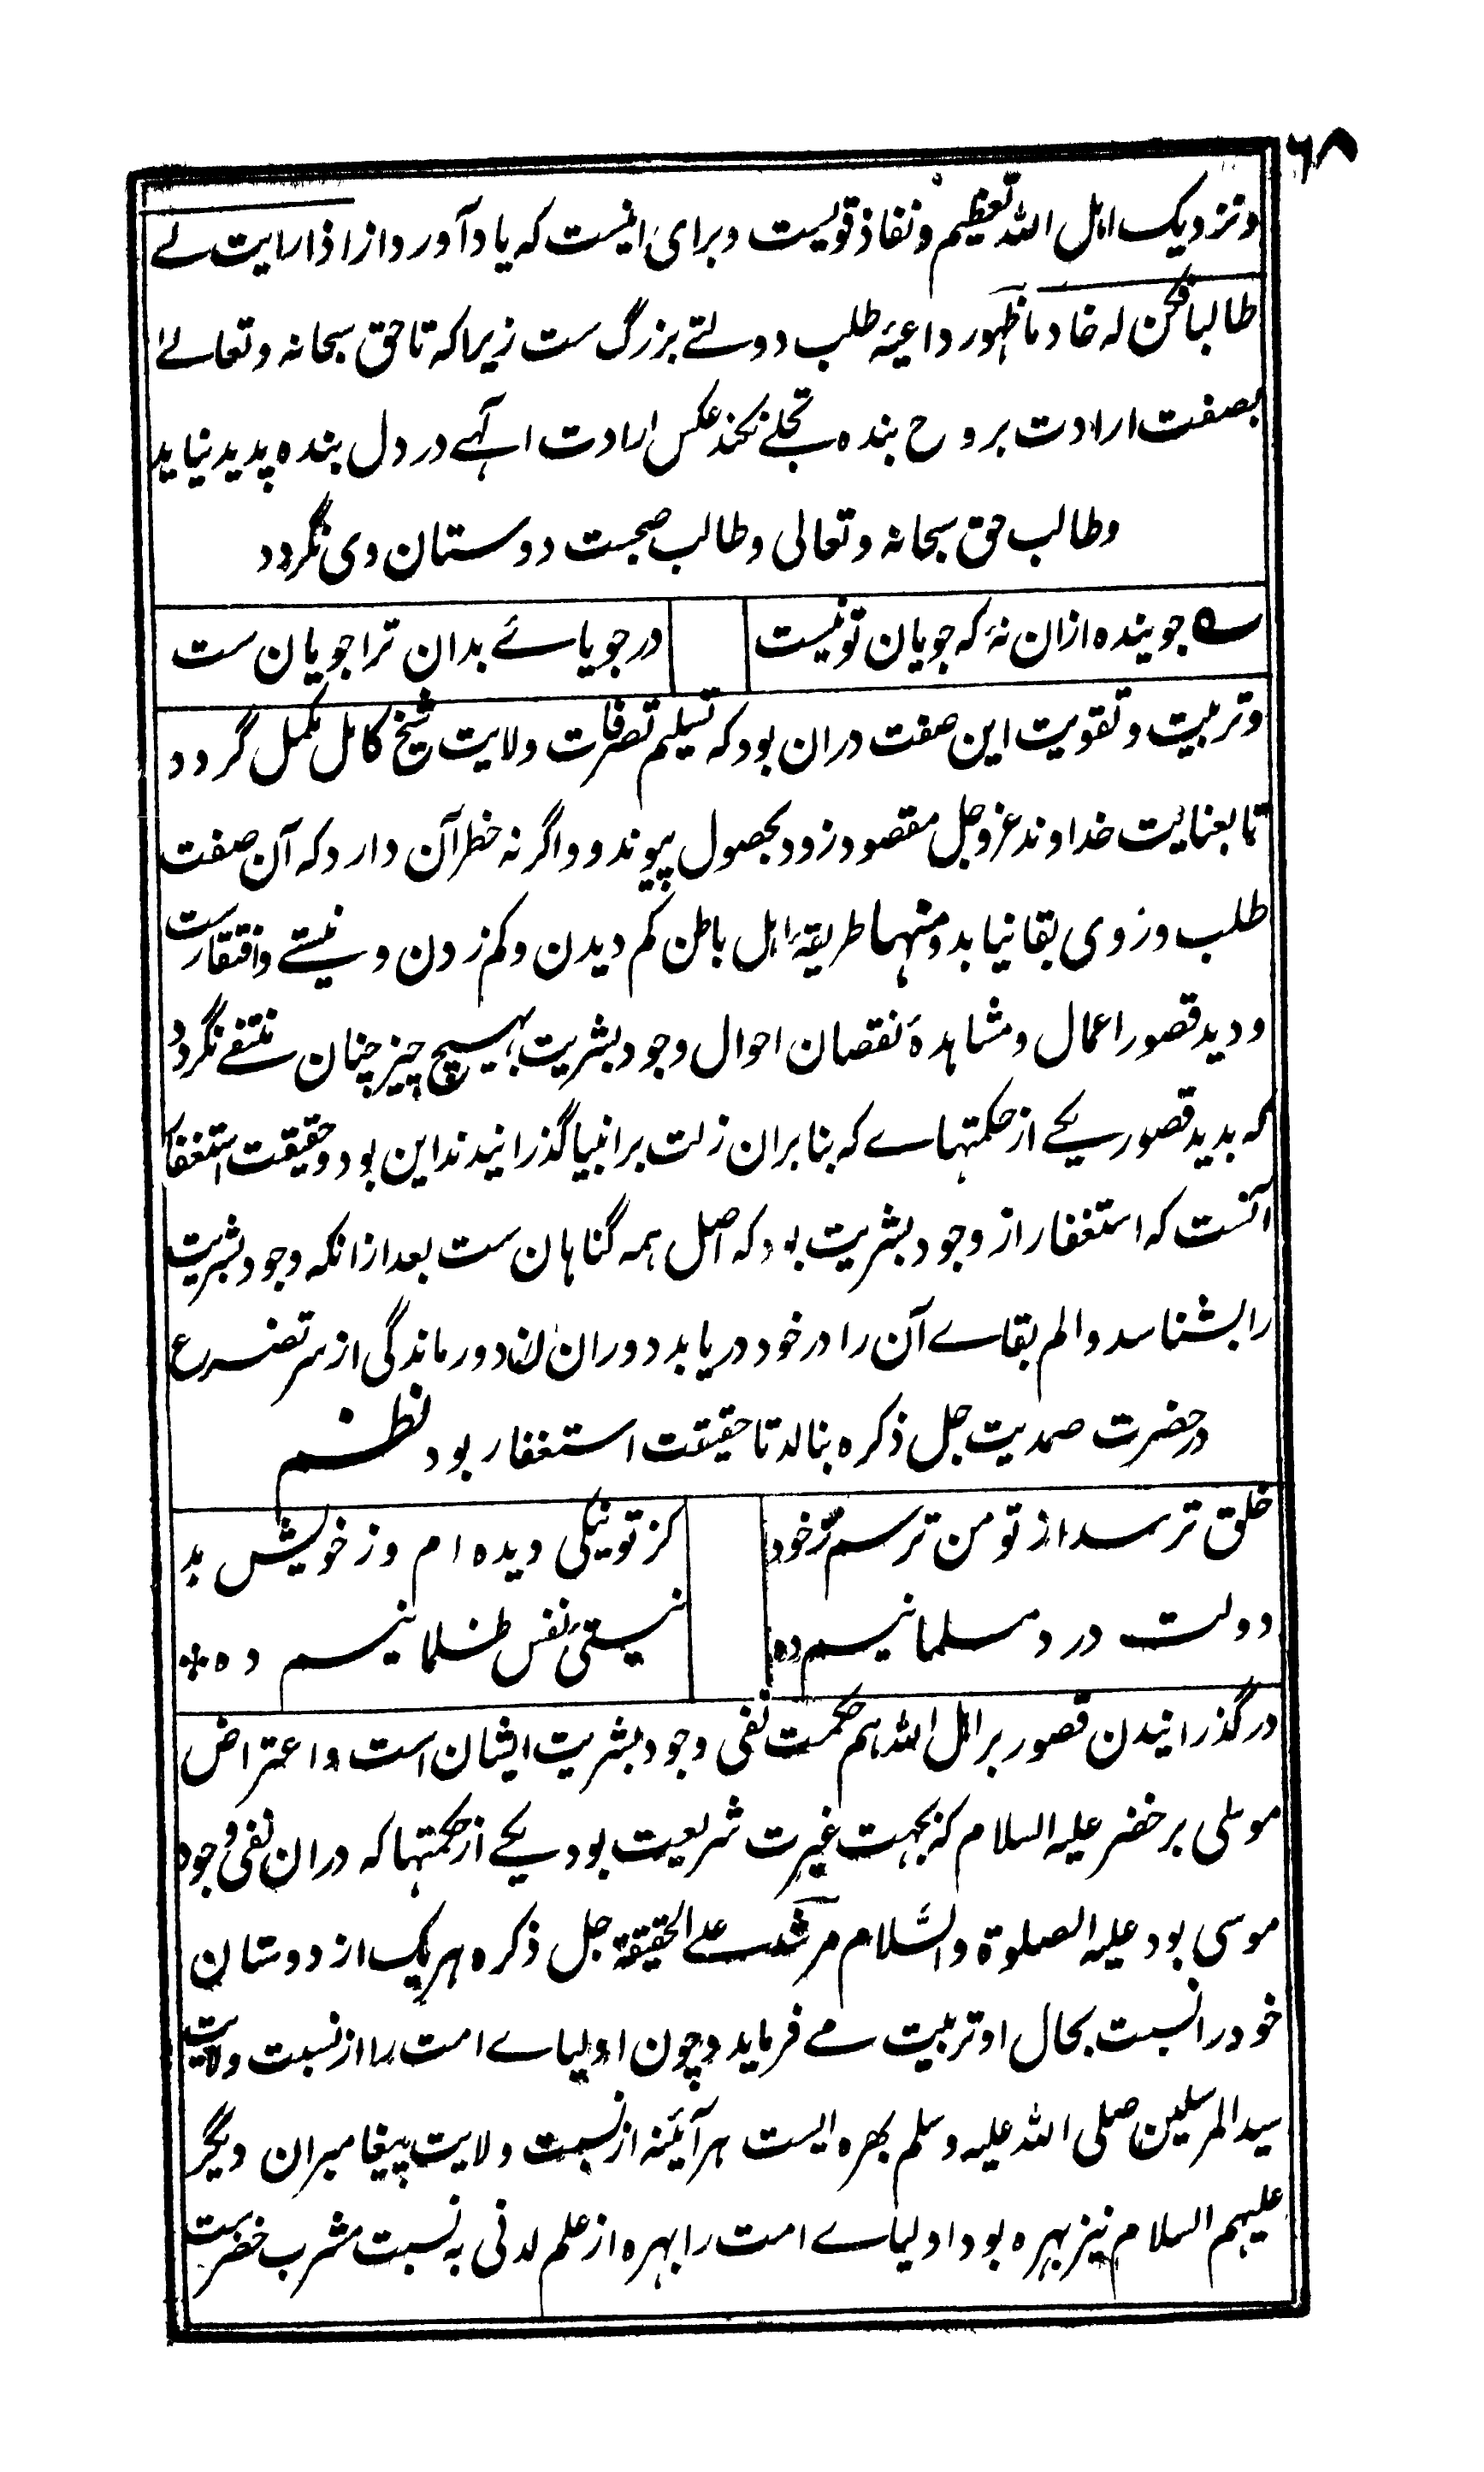 ۶۸
ونزدیک اہل اللہ تعظیم ونفاذ قویست وبرای اینست کہ یاد آورد از اذا رایت لے
طالبا فکن لہ خادما ظہور داعیۂ طلب دولتے بزرگ ست زیرا کہ تا حق سبحانہ وتعالےٰ
بصفت ارادت بروح بندہ تجلے نکند عکس ارادت الٰہے در دل بندہ پدید نیاید
وطالب حق سبحانہ وتعالی وطالب صحبت دوستان وی نگردد
جویندہ ازان نۂ کہ جویان تو نیست در جویاے بدان ترا جویان ست
وتربیت وتقویت این صفت دران بود کہ تسلیم تصرفات ولایت شیخ کامل مکمل گردد
تا بعنایت خداوند عزوجل مقصود زود بحصول پیوندد واگرنہ خطر آن دارد کہ آن صفت
طلب وزوی بقا نیابد ومنہا طریقۂ اہل باطن کم دیدن وکم زدن ونیستے وافتقارست
ودید قصور اعمال ومشاہدۂ نقصان احوال وجود بشریت بہیچ چیز چنان منتفے نگردد
کہ بدید قصور یکے از حکمتہاے کہ بنا بران زلت بر انبیا گذرانیدند این بود وحقیقت استغفار
آنست کہ استغفار از وجود بشریت بود کہ اصل ہمہ گناہان ست بعد ازانکہ وجود بشریت
را بشناسد والم بقاے آن را در خود دریابد ودران درماندگی از سر تضرع
در حضرت صمدیت جل ذکرہ بنالد تا حقیقت استغفار بود نظم
خلق ترسد از تو من ترسم ز خود کز تو نیکی دیدہ ام وز خویش بد
دولت درد مسلمانیم دہ نیستئ نفس ظلمانیم دہ
در گذرانیدن قصور بر اہل اللہ ہم حکمت نفی وجود بشریت ایشان است واعتراض
موسی بر خضر علیہ السلام کہ بجہت غیرت شریعت بود یکے از حکمتہا کہ دران نفی وجود
موسی بود علیہ الصلوۃ والسلام مرشد علے الحقیقۃ جل ذکرہ ہر یک از دوستان
خود را نسبت بحال او تربیت مے فرماید وچون اولیاے امت را از نسبت ولایت
سید المرسلین صلی اللہ علیہ وسلم بہرہ ایست ہر آئینہ از نسبت ولایت پیغامبران دیگر
علیہم السلام نیز بہرہ بود اولیاے امت را بہرہ از علم لدنی بہ نسبت مشرب خضرست